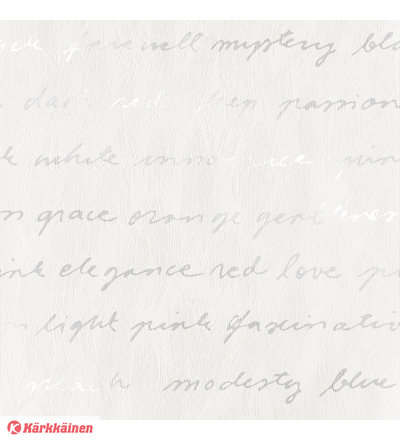 farewell mystery bla
dark red deep passion
k white innocence pin
n grace orange gentleness
ink elegance red love p
light pink fascinatio
peach modesty blue
Kärkkäinen